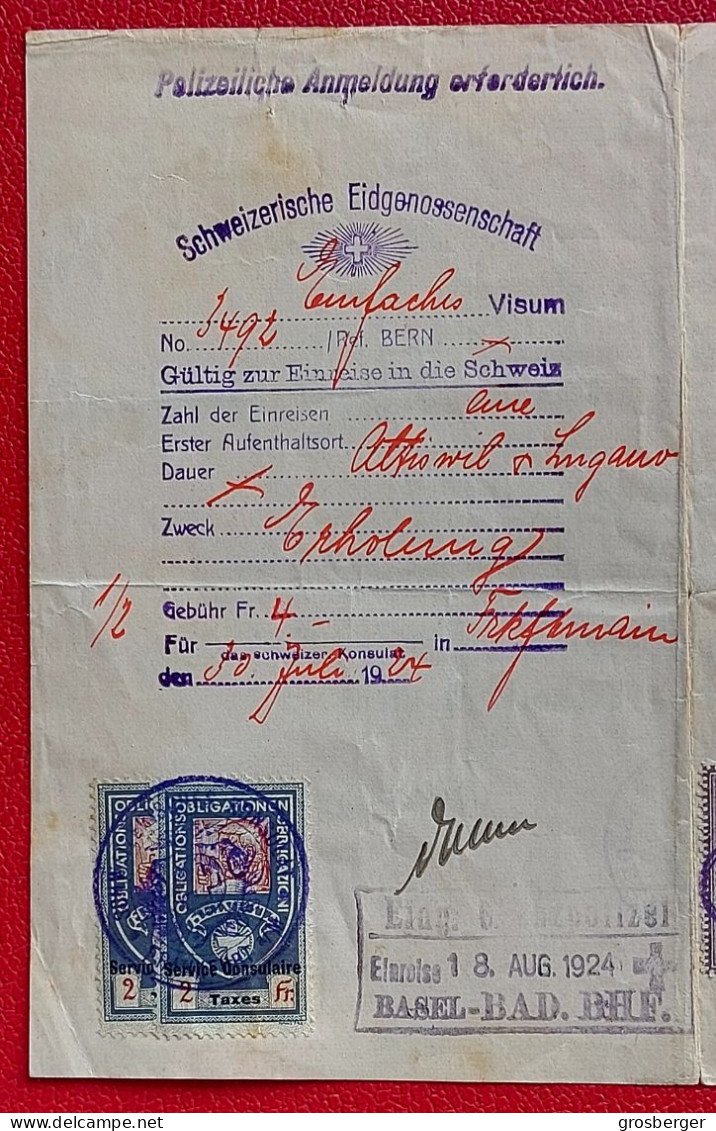 Polizeiliche Anmeldung erforderlich.
Schweizerische Eidgenossenschaft
Einfaches Visum
No. 3492 / Ref. BERN x
Gültig zur Einreise in die Schweiz
Zahl der Einreisen eine
Erster Aufenthaltsort Attiswil & Lugano
Dauer x
Zweck Erholung
1/2 Gebühr Fr. 4.-
Für das schweizer. Konsulat in Frkf. a/main
den 30. Juli 1924
OBLIGATIONEN
OBLIGATIONS
OBLIGATIONEN
OBLIGATIONS
OBBLIGAZIONI
HELVETIA
Service Consulaire
Taxes
2 2 Fr.
Eidg. Grenzpolizei
Einreise 18. AUG. 1924
BASEL-BAD. BHF.
© grosberger